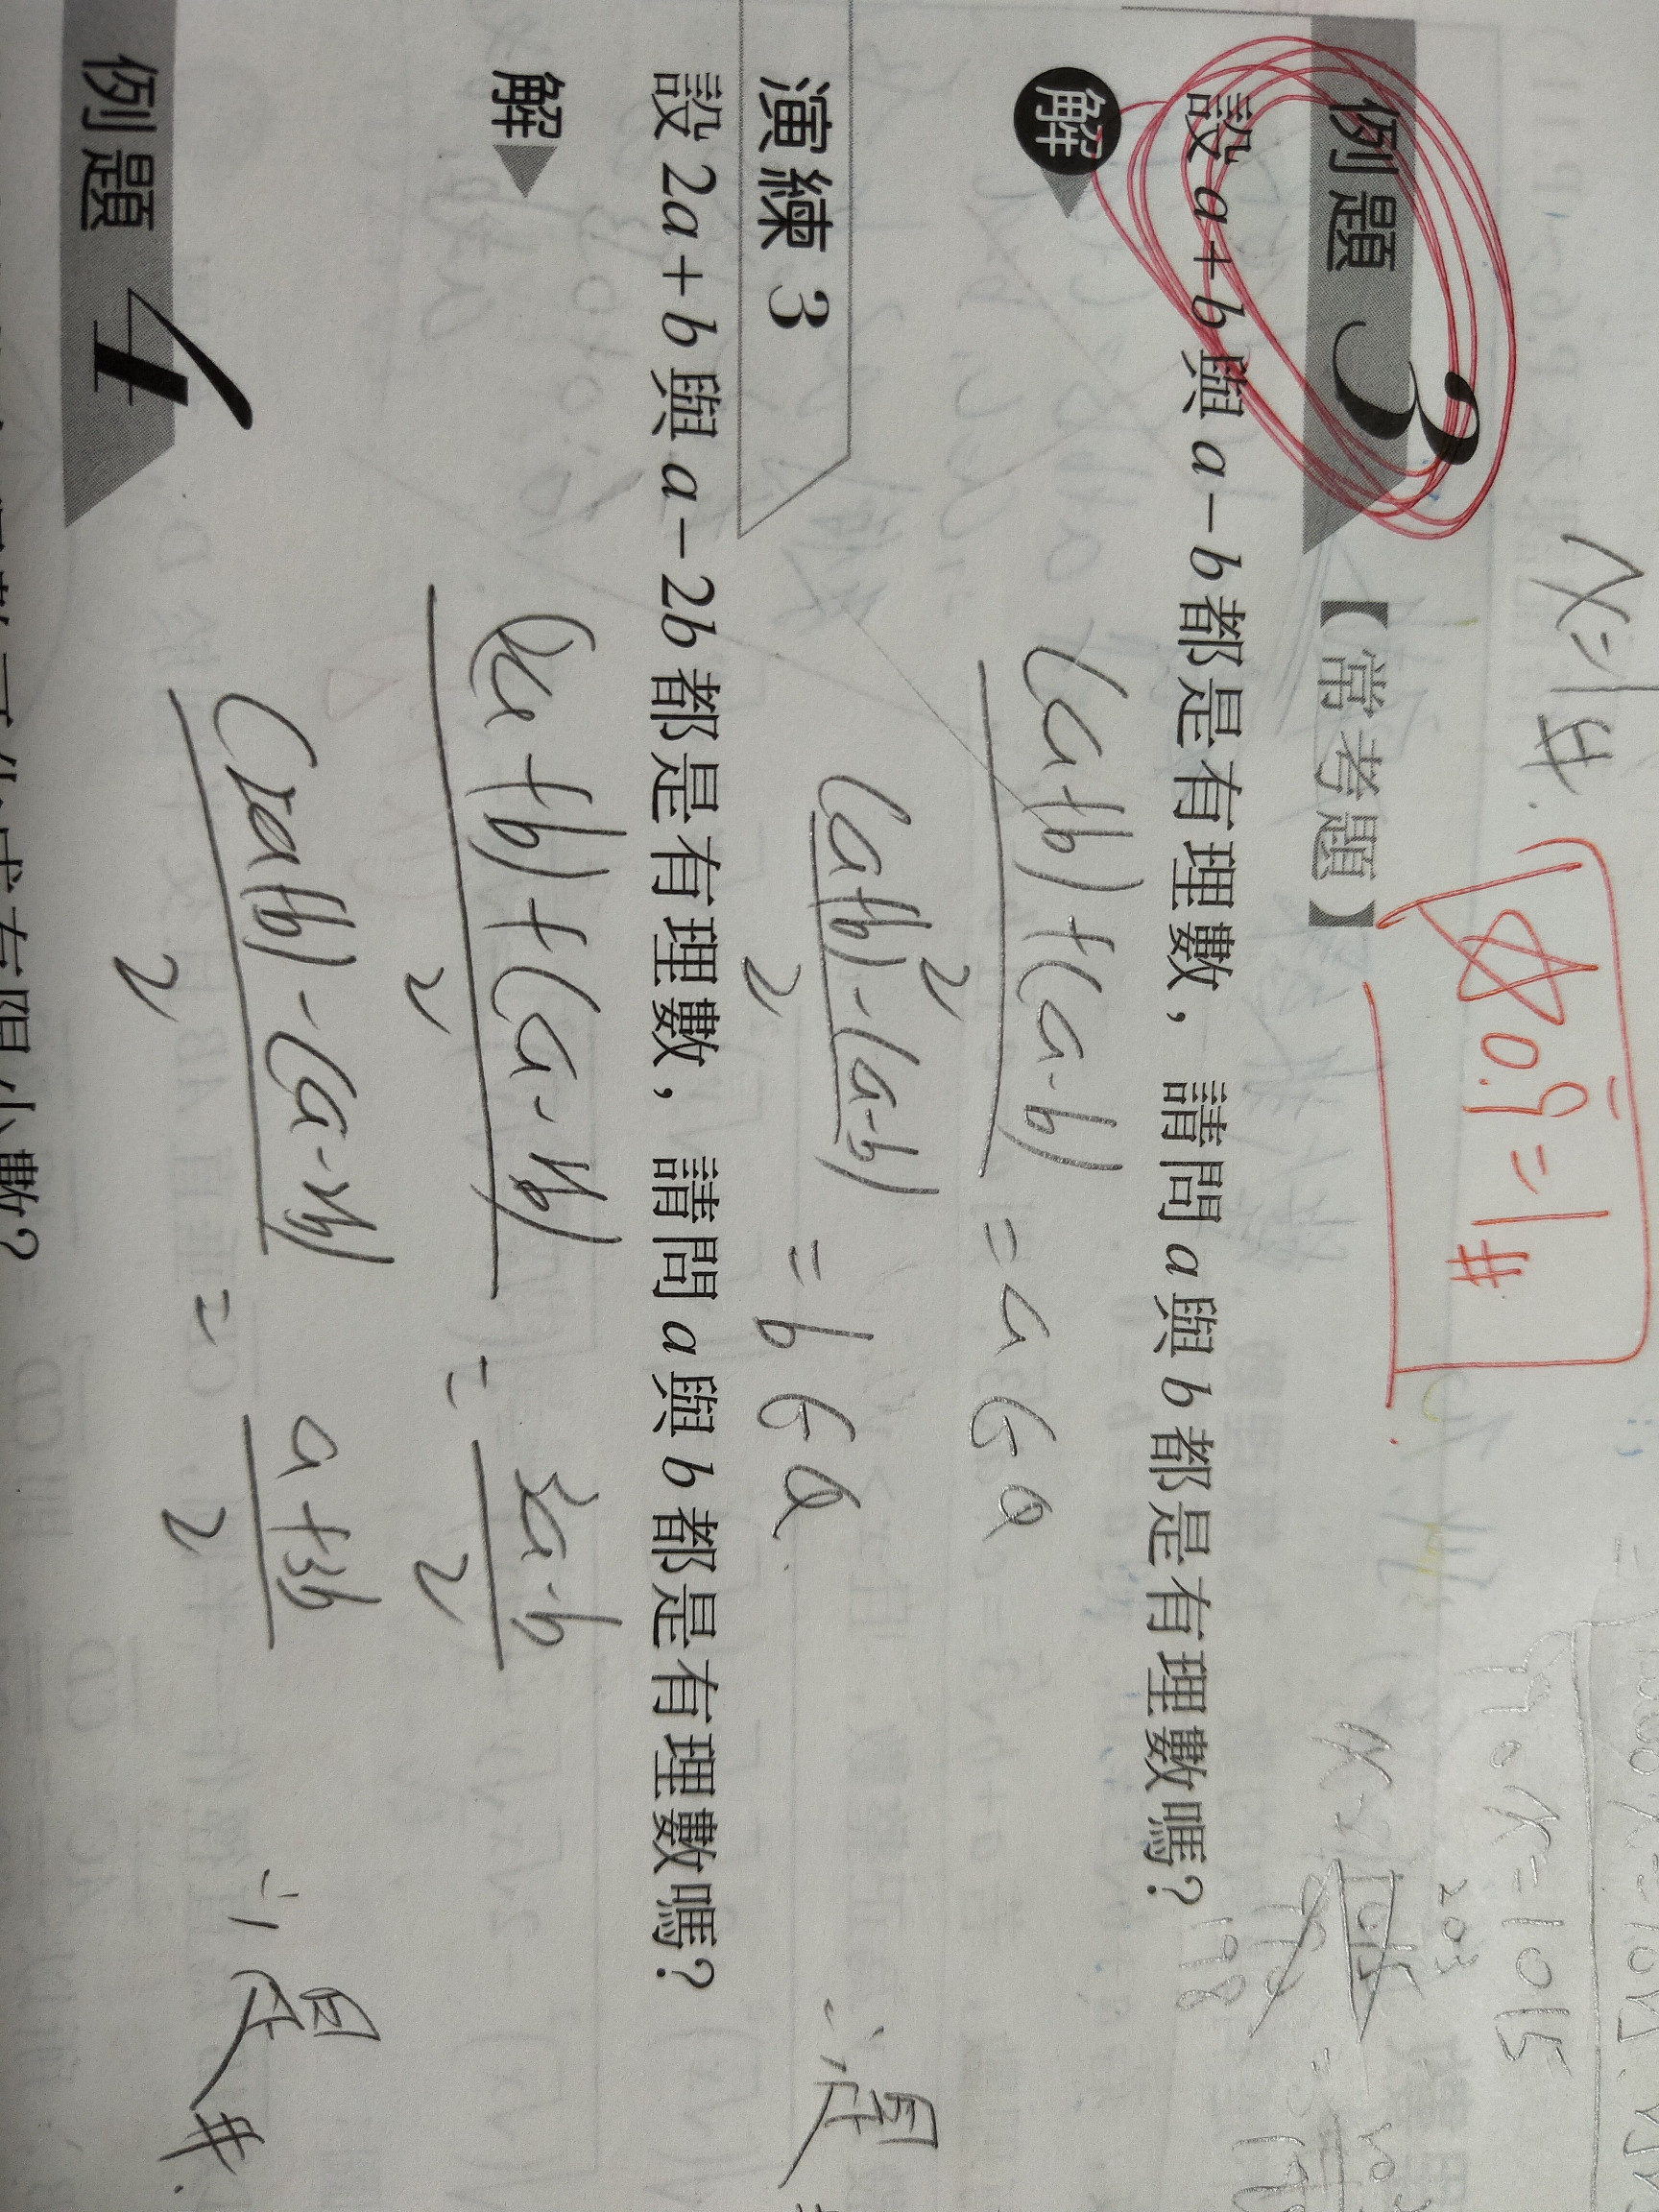 x=1#.
☆ 0.9̅=1 #
例題 3 【常考題】
90x=1015
203
198
設 a+b 與 a−b 都是有理數，請問 a 與 b 都是有理數嗎？
解
(a+b)+(a-b) / 2 = a ∈ Q
(a+b)-(a-b) / 2 = b ∈ Q.
∴是
演練 3
設 2a+b 與 a−2b 都是有理數，請問 a 與 b 都是有理數嗎？
解
(2a+b)+(a-2b) / 2 = 3a-b / 2
(2a+b)-(a-2b) / 2 = a+3b / 2
∴是#.
例題 4